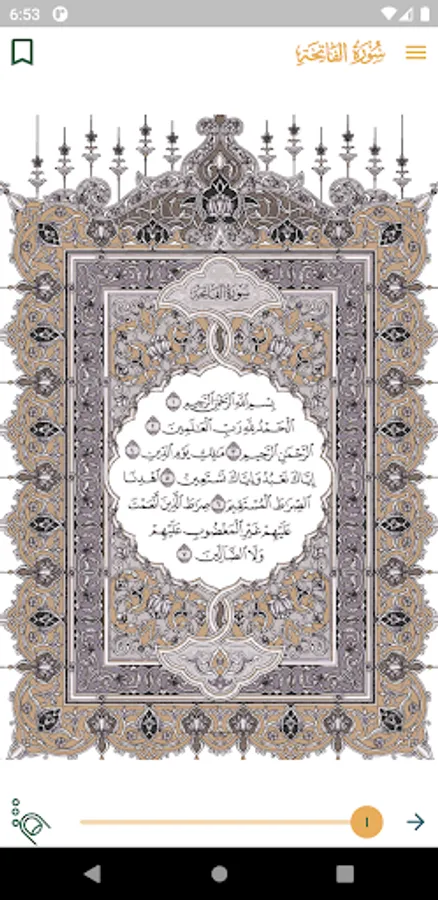 6:53
سُورَةُ الفَاتِحَةِ
سُورَةُ الفَاتِحَةِ
بِسْمِ ٱللَّهِ ٱلرَّحْمَٰنِ ٱلرَّحِيمِ ١
ٱلْحَمْدُ لِلَّهِ رَبِّ ٱلْعَٰلَمِينَ ٢
ٱلرَّحْمَٰنِ ٱلرَّحِيمِ ٣ مَٰلِكِ يَوْمِ ٱلدِّينِ ٤
إِيَّاكَ نَعْبُدُ وَإِيَّاكَ نَسْتَعِينُ ٥ ٱهْدِنَا
ٱلصِّرَٰطَ ٱلْمُسْتَقِيمَ ٦ صِرَٰطَ ٱلَّذِينَ أَنْعَمْتَ
عَلَيْهِمْ غَيْرِ ٱلْمَغْضُوبِ عَلَيْهِمْ
وَلَا ٱلضَّآلِّينَ ٧
١